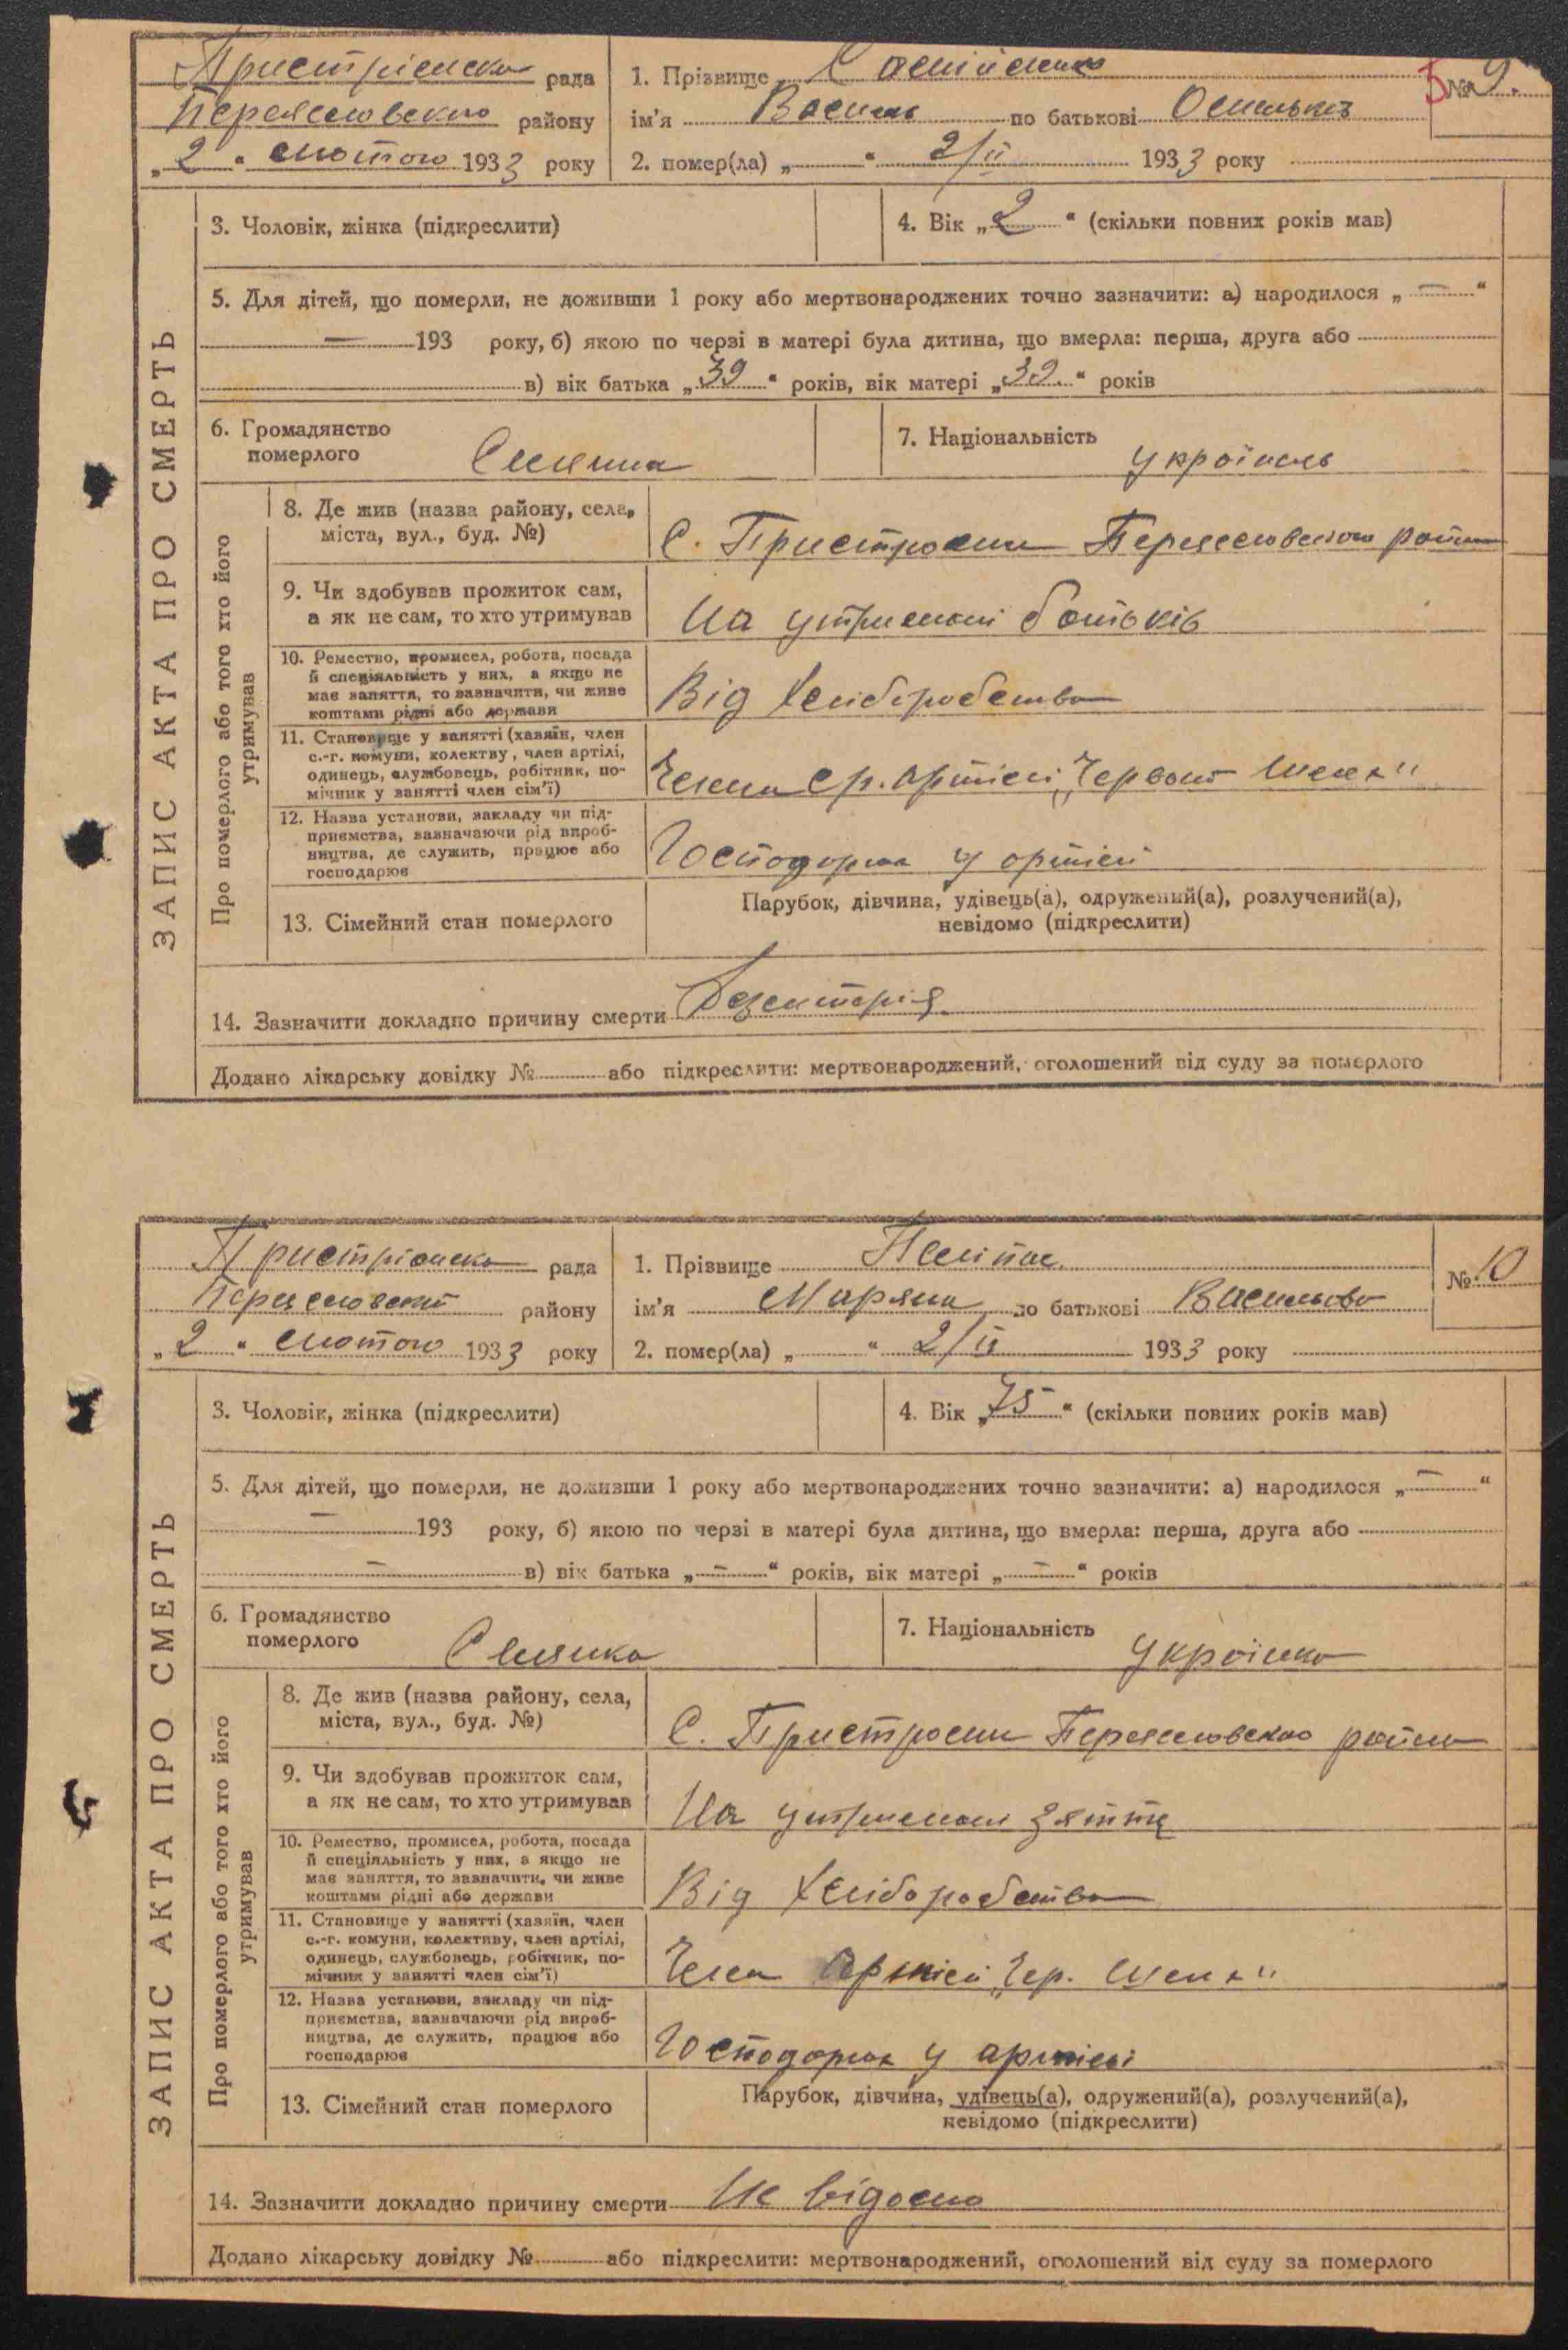 Пристрінська рада
Переяславського району
„2“ лютого 1933 року
1. Прізвище
ім'я Василь по батькові
2. помер(ла) „ “ 2/ІІ 1933 року
№ 9.
ЗАПИС АКТА ПРО СМЕРТЬ
3. Чоловік, жінка (підкреслити)
4. Вік „2“ (скільки повних років мав)
5. Для дітей, що померли, не доживши 1 року або мертвонароджених точно зазначити: а) народилося „—“
— 193 року, б) якою по черзі в матері була дитина, що вмерла: перша, друга або
в) вік батька „39“ років, вік матері „39.“ років
6. Громадянство
померлого
7. Національність українець
Про померлого або того хто його
утримував
8. Де жив (назва району, села,
міста, вул., буд. №)
С. Пристроми Переяславского району
9. Чи здобував прожиток сам,
а як не сам, то хто утримував
На утримані батьків
10. Ремество, промисел, робота, посада
й спеціяльність у них, а якщо не
має заняття, то зазначити, чи живе
коштами рідні або держави
Від хліборобства
11. Становище у занятті (хазяїн, член
с.-г. комуни, колектву, член артілі,
одинець, службовець, робітник, по-
мічник у занятті член сім'ї)
Член ср. артілі „Червон. Шлях“
12. Назва установи, закладу чи під-
приємства, зазначаючи рід вироб-
ництва, де служить, працює або
господарює
Господарює у артілі
13. Сімейний стан померлого
Парубок, дівчина, удівець(а), одружений(а), розлучений(а),
невідомо (підкреслити)
14. Зазначити докладно причину смерти Дезентерія.
Додано лікарську довідку № або підкреслити: мертвонароджений, оголошений від суду за померлого
Пристрінська рада
Переяславський району
„2“ лютого 1933 року
1. Прізвище
ім'я Маряна по батькові Васильова
2. помер(ла) „ “ 2/ІІ 1933 року
№ 10
ЗАПИС АКТА ПРО СМЕРТЬ
3. Чоловік, жінка (підкреслити)
4. Вік „75“ (скільки повних років мав)
5. Для дітей, що померли, не доживши 1 року або мертвонароджених точно зазначити: а) народилося „—“
— 193 року, б) якою по черзі в матері була дитина, що вмерла: перша, друга або
— в) вік батька „—“ років, вік матері „—“ років
6. Громадянство
померлого Селянка
7. Національність українка
Про померлого або того хто його
утримував
8. Де жив (назва району, села,
міста, вул., буд. №)
С. Пристроми Переяславского району
9. Чи здобував прожиток сам,
а як не сам, то хто утримував
На утримані зяття
10. Ремество, промисел, робота, посада
й спеціяльність у них, а якщо не
має заняття, то зазначити, чи живе
коштами рідні або держави
Від хліборобства
11. Становище у занятті (хазяїн, член
с.-г. комуни, колективу, член артілі,
одинець, службовець, робітник, по-
мічник у занятті член сім'ї)
Член Артілі „Чер. Шлях“
12. Назва установи, закладу чи під-
приємства, зазначаючи рід вироб-
ництва, де служить, працює або
господарює
Господарює у артілі
13. Сімейний стан померлого
Парубок, дівчина, удівець(а), одружений(а), розлучений(а),
невідомо (підкреслити)
14. Зазначити докладно причину смерти Не відомо
Додано лікарську довідку № або підкреслити: мертвонароджений, оголошений від суду за померлого